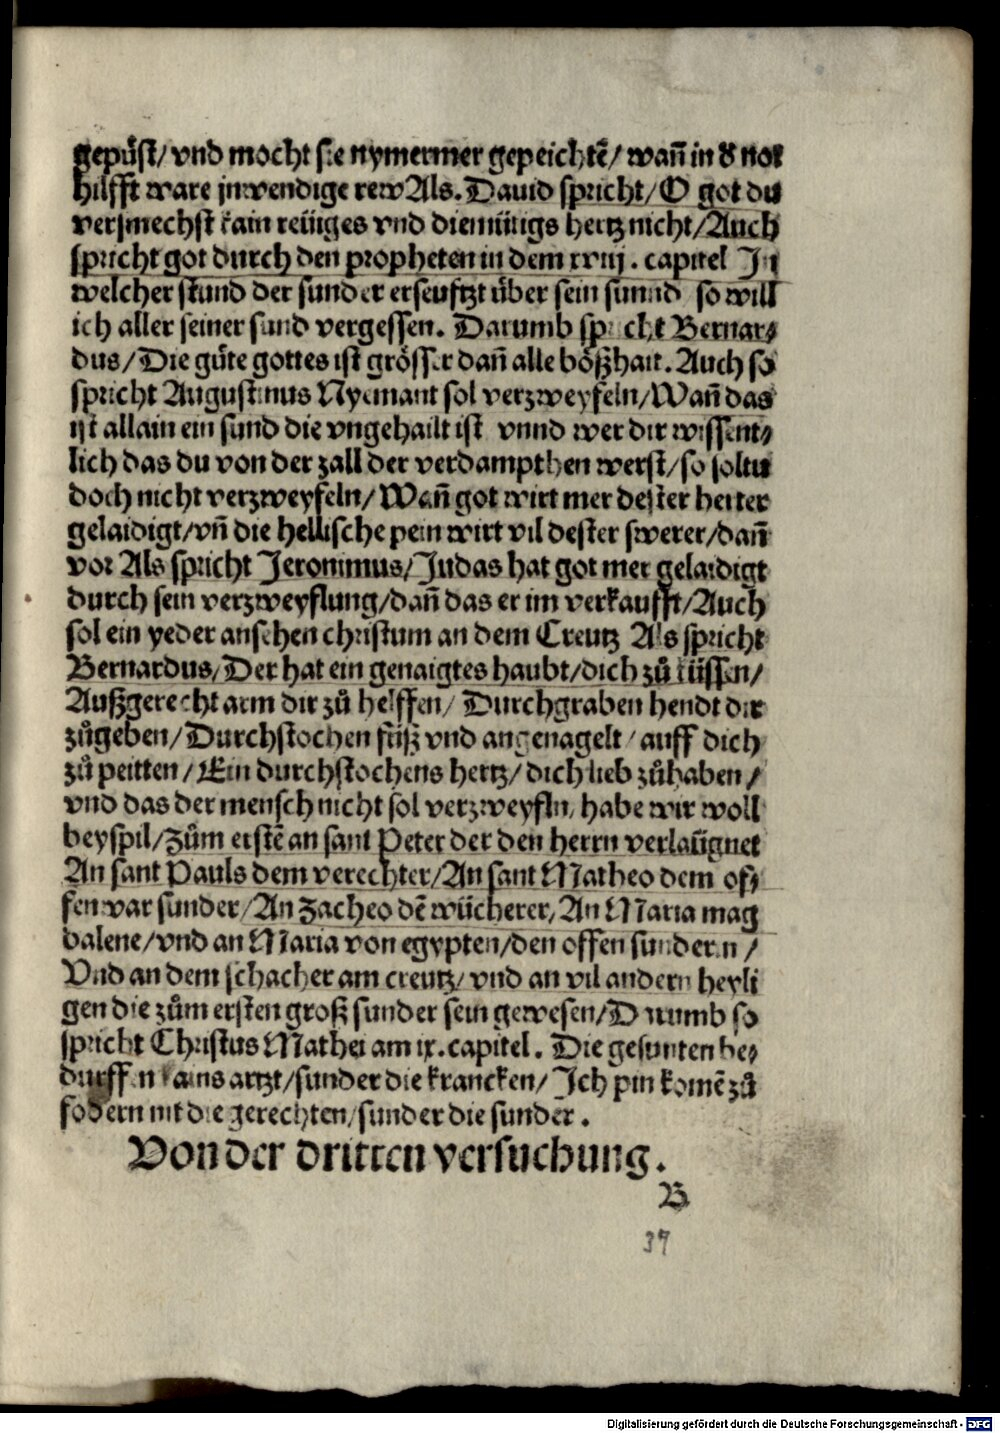 gepůst/ vnd mocht sie nymermer gepeichtē/ wañ in d᷑ not
hilfft ware jnwendige rew Als. Dauid spricht/ O got du
versmechst kain reüiges vnd diemütigs hertz nicht/ Auch
spricht got durch den propheten in dem xviij. capitel In
welcher stund der sunder erseuftzt über sein sunnd so will
ich aller seiner sund vergessen. Darumb spricht Bernar⸗
dus/ Die gůte gottes ist grösser dañ alle bößhait. Auch so
spricht Augustinus Nyemant sol verzweyfeln/ Wañ das
ist allain ein sund die vngehailt ist vnnd wer dir wissent⸗
lich das du von der zall der verdampthen werst/ so soltu
doch nicht verzweyfeln/ Wañ got wirt mer dester herter
gelaidigt/ vñ die hellische pein wirt vil dester swerer/ dañ
vor Als spricht Jeronimus/ Judas hat got mer gelaidigt
durch sein verzweyflung/ dañ das er im verkaufft/ Auch
sol ein yeder ansehen christum an dem Creutz Als spricht
Bernardus/ Der hat ein genaigtes haubt/ dich zů küssen/
Außgerecht arm dir zů helffen/ Durchgraben hendt dir
zůgeben/ Durchstochen füß vnd angenagelt/ auff dich
zů peitten/ Ein durchstochens hertz/ dich lieb zůhaben/
vnd das der mensch nicht sol verzweyfln/ habe wir woll
beyspil/ Zům erstē an sant Peter der den herrn verlaügnet
An sant Pauls dem verechter/ An sant Matheo dem of⸗
fenwar sunder/ An Zacheo dē wücherer/ An Maria mag
dalene/ vnd an Maria von egypten/ den offen sundern/
Vnd an dem schacher am creutz/ vnd an vil andern heyli
gen die zům ersten groß sunder sein gewesen/ Darumb so
spricht Christus Mathei am ix. capitel. Die gesunten be⸗
durffen kains artzt/ sunder die krancken/ Ich pin komē zů
fodern nit die gerechten/ sunder die sunder.
Von der dritten versuchung.
B
37
Digitalisierung gefördert durch die Deutsche Forschungsgemeinschaft - DFG